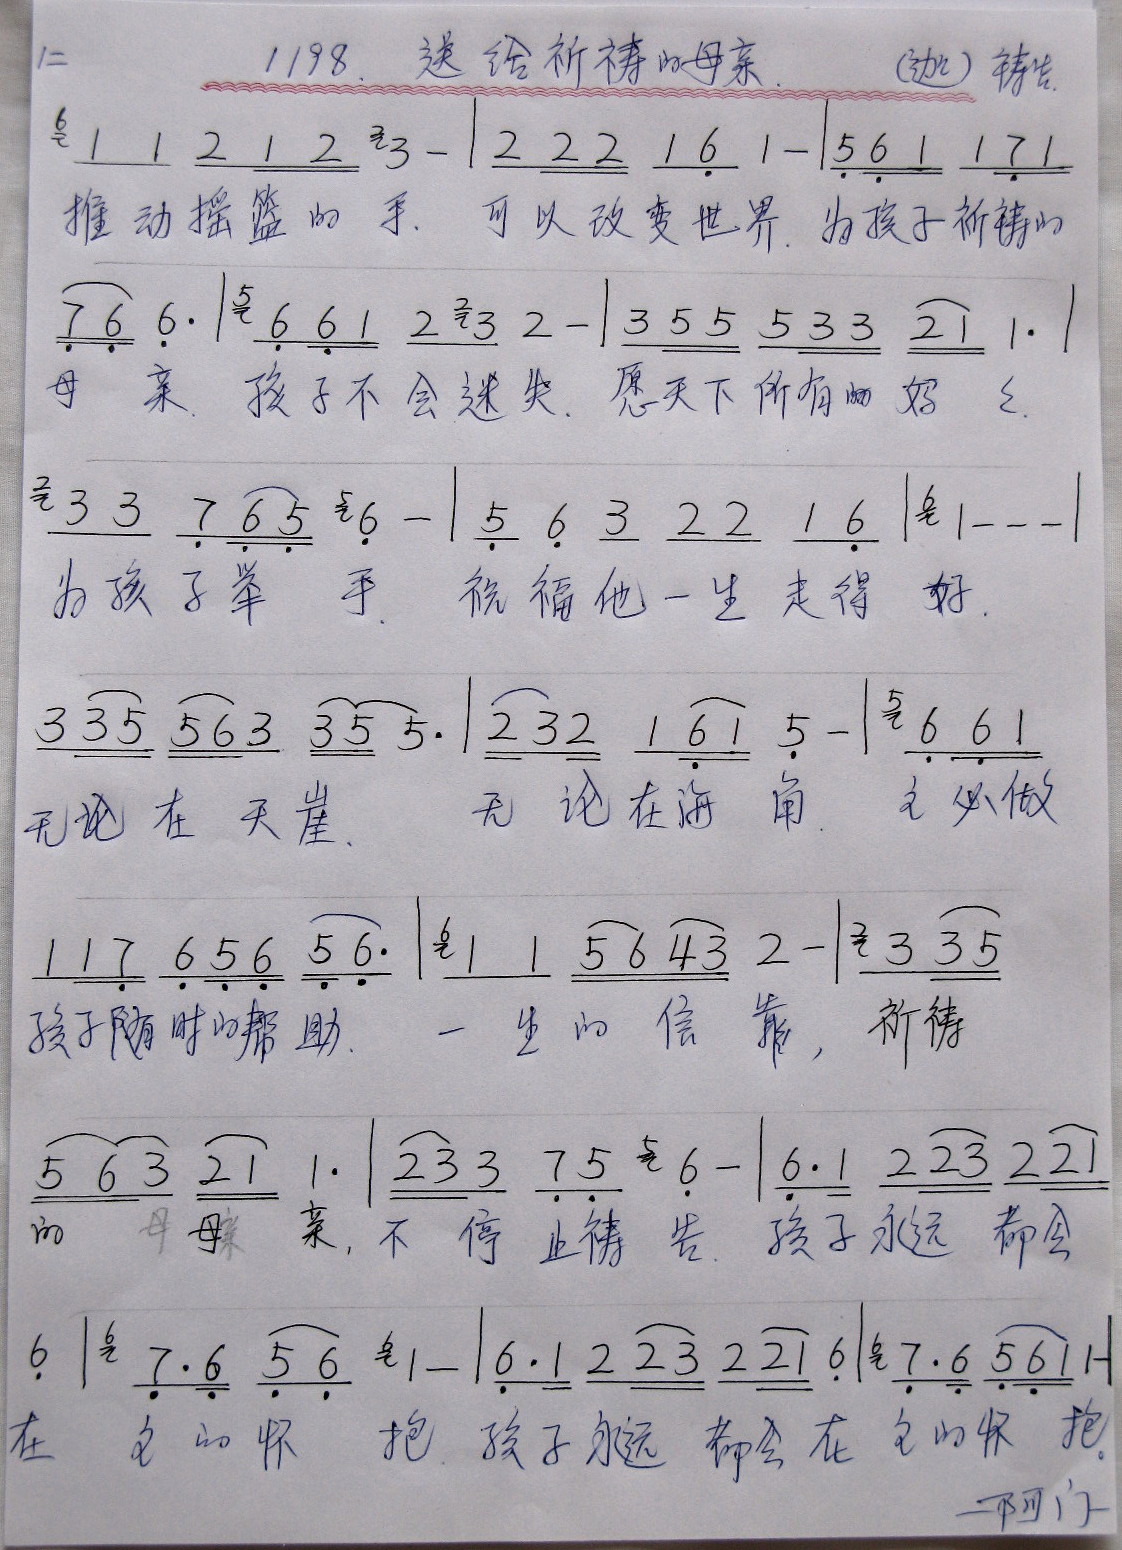 1= 1198. 送给祈祷的母亲. (迦) 祷告.
6 1 1 2 1 2 2 3 - | 2 2 2 1 6 1 - | 5 6 1 1 7 1
推动摇篮的手. 可以改变世界. 为孩子祈祷的
7 6 6. | 5 6 6 1 2 2 3 2 - | 3 5 5 5 3 3 2 1 1. |
母亲. 孩子不会迷失. 愿天下所有的妈々.
2 3 3 7 6 5 5 6 - | 5 6 3 2 2 1 6 | 6 1 - - - |
为孩子举手. 祝福他一生走得好.
3 3 5 5 6 3 3 5 5. | 2 3 2 1 6 1 5 - | 5 6 6 1
无论在天崖. 无论在海角. 主必做
1 1 7 6 5 6 5 6. | 6 1 1 5 6 4 3 2 - | 2 3 3 5
孩子随时的帮助. 一生的信靠, 祈祷
5 6 3 2 1 1. | 2 3 3 7 5 5 6 - | 6. 1 2 2 3 2 2 1
的母母亲, 不停止祷告. 孩子永远都会
6 | 6 7. 6 5 6 6 1 - | 6. 1 2 2 3 2 2 1 6 | 6 7. 6 5 6 1 1 -|
在主的怀抱. 孩子永远都会在主的怀抱.
—阿门—